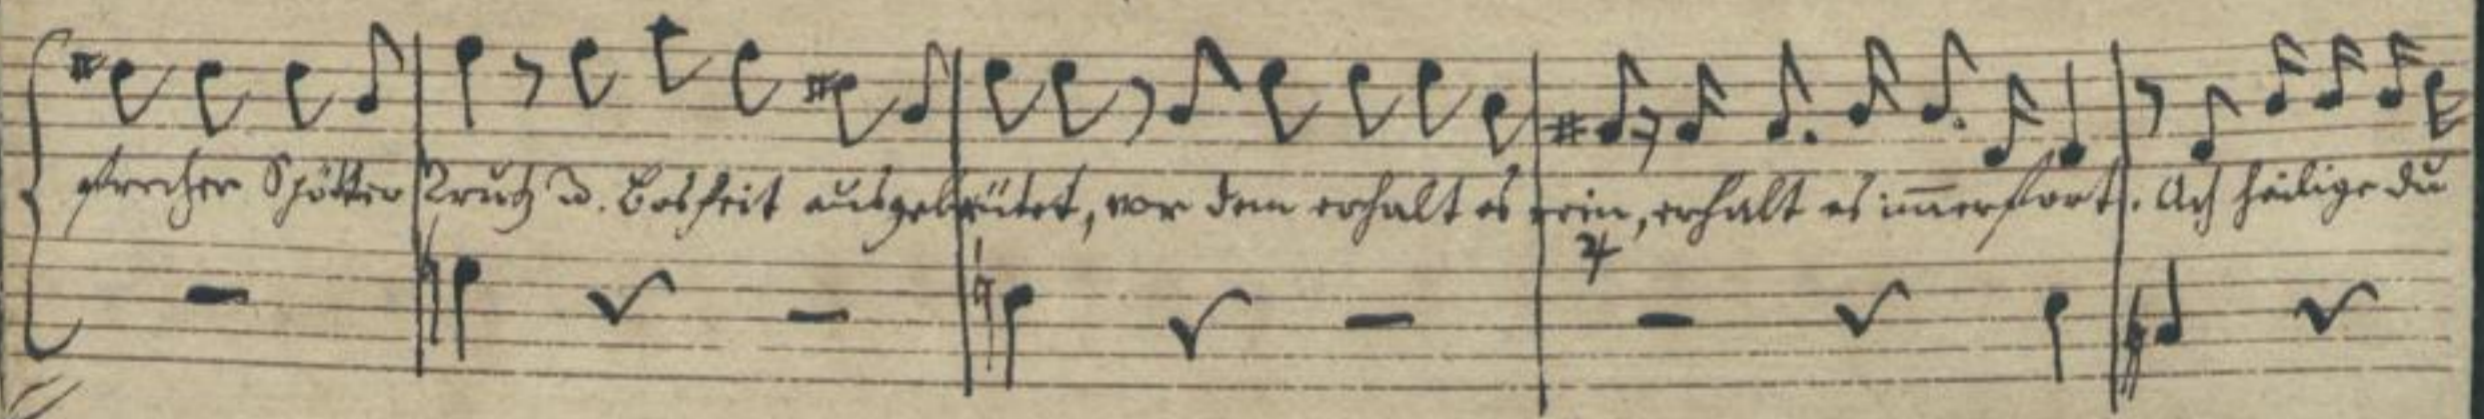 frecher Spötter Trutz u. Bosheit ausgebrütet, vor dem erhalt es rein, erhalt es im̄erfort. Ach heilige du